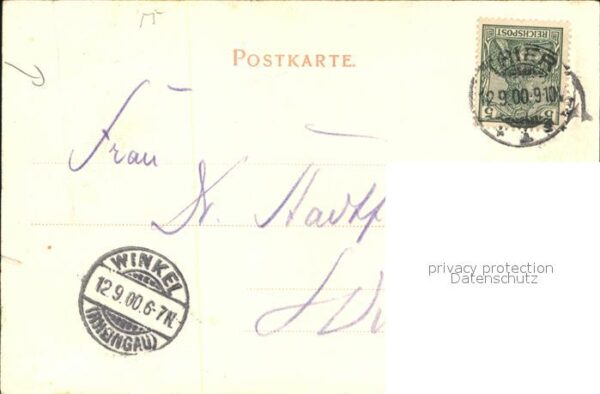 POSTKARTE.
REICHSPOST
5
TRIER
12.9.00.9-10V
Frau
Dr.
WINKEL
12.9.00.6-7N.
(RHEINGAU)
privacy protection
Datenschutz